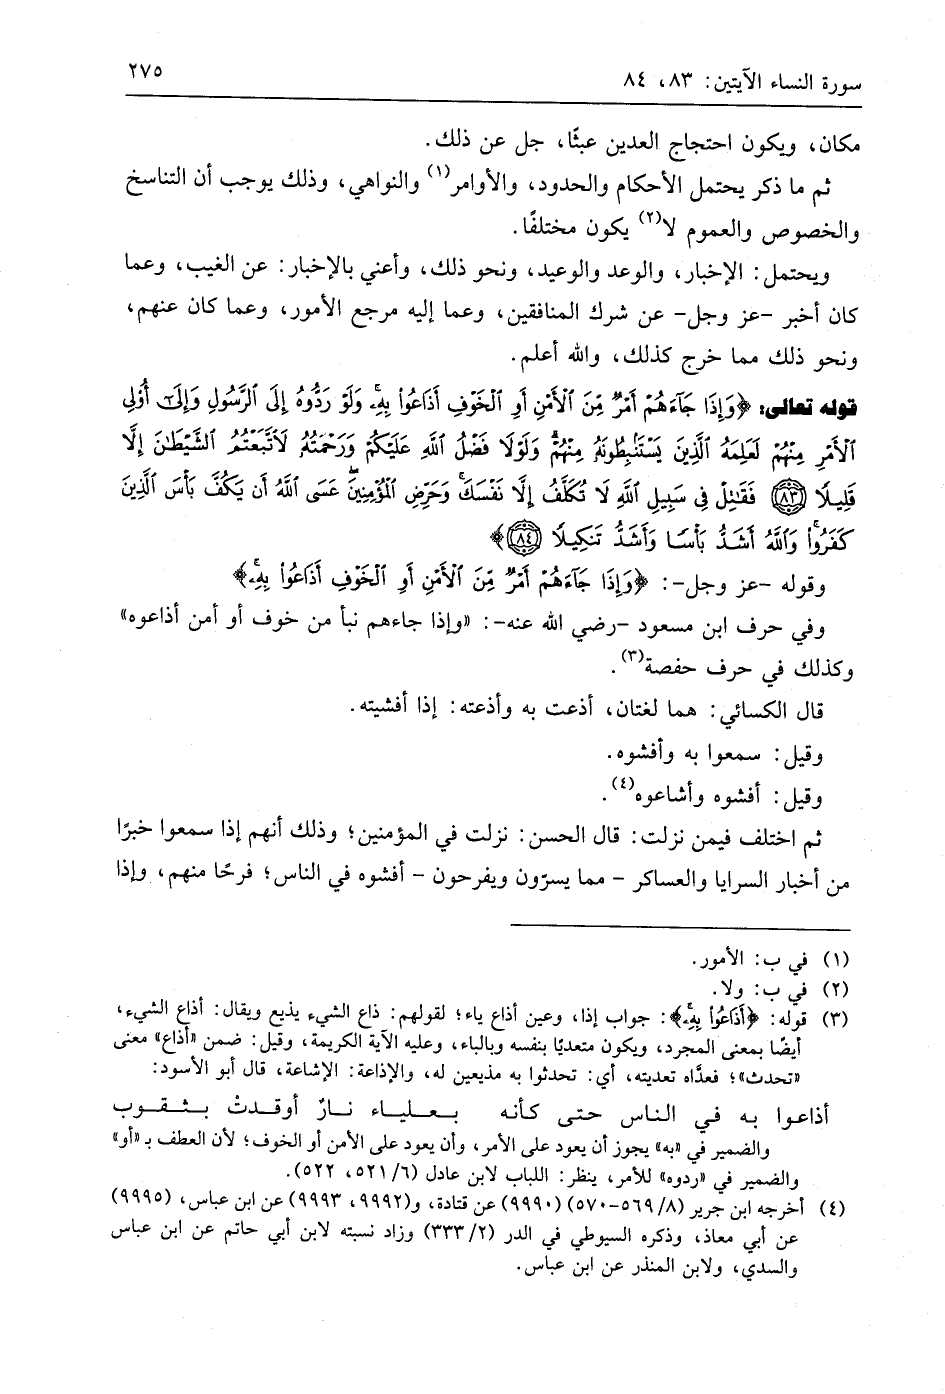 سورة النساء الآيتين: ٨٣، ٨٤
٢٧٥
مكان، ويكون احتجاج العدين عبثًا، جل عن ذلك.
ثم ما ذكر يحتمل الأحكام والحدود، والأوامر(١) والنواهي، وذلك يوجب أن التناسخ
والخصوص والعموم لا(٢) يكون مختلفًا.
ويحتمل: الإخبار، والوعد والوعيد، ونحو ذلك، وأعني بالإخبار: عن الغيب، وعما
كان أخبر -عز وجل- عن شرك المنافقين، وعما إليه مرجع الأمور، وعما كان عنهم،
ونحو ذلك مما خرج كذلك، والله أعلم.
قوله تعالى: ﴿وَإِذَا جَآءَهُمْ أَمْرٌ مِّنَ ٱلْأَمْنِ أَوِ ٱلْخَوْفِ أَذَاعُوا۟ بِهِۦۖ وَلَوْ رَدُّوهُ إِلَى ٱلرَّسُولِ وَإِلَىٰٓ أُو۟لِى
ٱلْأَمْرِ مِنْهُمْ لَعَلِمَهُ ٱلَّذِينَ يَسْتَنۢبِطُونَهُۥ مِنْهُمْۗ وَلَوْلَا فَضْلُ ٱللَّهِ عَلَيْكُمْ وَرَحْمَتُهُۥ لَٱتَّبَعْتُمُ ٱلشَّيْطَٰنَ إِلَّا
قَلِيلًا ﴿٨٣﴾ فَقَٰتِلْ فِى سَبِيلِ ٱللَّهِ لَا تُكَلَّفُ إِلَّا نَفْسَكَۚ وَحَرِّضِ ٱلْمُؤْمِنِينَۖ عَسَى ٱللَّهُ أَن يَكُفَّ بَأْسَ ٱلَّذِينَ
كَفَرُوا۟ۚ وَٱللَّهُ أَشَدُّ بَأْسًا وَأَشَدُّ تَنكِيلًا ﴿٨٤﴾﴾
وقوله -عز وجل-: ﴿وَإِذَا جَآءَهُمْ أَمْرٌ مِّنَ ٱلْأَمْنِ أَوِ ٱلْخَوْفِ أَذَاعُوا۟ بِهِۦۖ﴾
وفي حرف ابن مسعود -رضي الله عنه-: «وإذا جاءهم نبأ من خوف أو أمن أذاعوه»
وكذلك في حرف حفصة(٣).
قال الكسائي: هما لغتان، أذعت به وأذعته: إذا أفشيته.
وقيل: سمعوا به وأفشوه.
وقيل: أفشوه وأشاعوه(٤).
ثم اختلف فيمن نزلت: قال الحسن: نزلت في المؤمنين؛ وذلك أنهم إذا سمعوا خبرًا
من أخبار السرايا والعساكر - مما يسرّون ويفرحون - أفشوه في الناس؛ فرحًا منهم، وإذا
(١) في ب: الأمور.
(٢) في ب: ولا.
(٣) قوله: ﴿أَذَاعُوا۟ بِهِۦۖ﴾: جواب إذا، وعين أذاع ياء؛ لقولهم: ذاع الشيء يذيع ويقال: أذاع الشيء،
أيضًا بمعنى المجرد، ويكون متعديًا بنفسه وبالباء، وعليه الآية الكريمة، وقيل: ضمن «أذاع» معنى
«تحدث»؛ فعدَّاه تعديته، أي: تحدثوا به مذيعين له، والإذاعة: الإشاعة، قال أبو الأسود:
أذاعوا به في الناس حتى كأنه بعلياء نارٌ أوقدتْ بثقوب
والضمير في «به» يجوز أن يعود على الأمر، وأن يعود على الأمن أو الخوف؛ لأن العطف بـ «أو»
والضمير في «ردوه» للأمر، ينظر: اللباب لابن عادل (٦/ ٥٢١، ٥٢٢).
(٤) أخرجه ابن جرير (٨/ ٥٦٩-٥٧٠) (٩٩٩٠) عن قتادة، و(٩٩٩٢، ٩٩٩٣) عن ابن عباس، (٩٩٩٥)
عن أبي معاذ، وذكره السيوطي في الدر (٢/ ٣٣٣) وزاد نسبته لابن أبي حاتم عن ابن عباس
والسدي، ولابن المنذر عن ابن عباس.